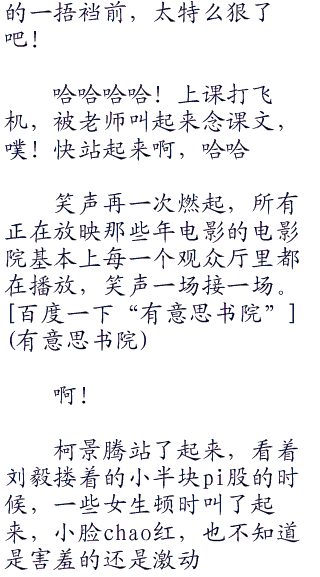 的一捂裆前，太特么狠了
吧！
哈哈哈哈！上课打飞
机，被老师叫起来念课文，
噗！快站起来啊，哈哈
笑声再一次燃起，所有
正在放映那些年电影的电影
院基本上每一个观众厅里都
在播放，笑声一场接一场。
[百度一下“有意思书院”]
(有意思书院)
啊！
柯景腾站了起来，看着
刘毅搂着的小半块pi股的时
候，一些女生顿时叫了起
来，小脸chao红，也不知道
是害羞的还是激动